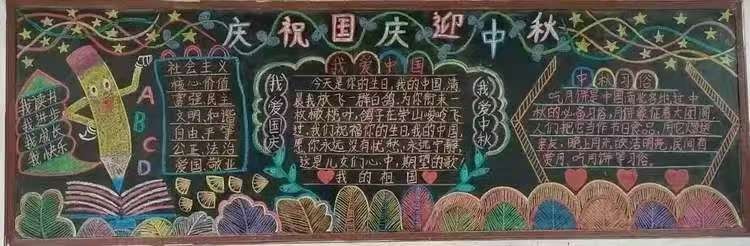 庆祝国庆迎中秋
我读书
我进步
我成长
我快乐
A
B
C
D
社会主义
核心价值
富强民主
文明和谐
自由平等
公正法治
爱国敬业
我爱国庆
我爱中国
今天是你的生日,我的中国,清
晨我放飞一群白鸽,为你衔来一
枚橄榄叶,鸽子在崇山峻岭飞
过,我们祝福你的生日我的中国,
愿你永远没有忧愁,永远宁静,
这是儿女们心中,期望的歌
我的祖国
我爱中秋
中秋习俗
吃月饼是中国南北各地过中
秋的必备习俗,月饼象征着大团圆
人们把它当作节日食品,用它
亲友,晚上月亮
赏月,吃月饼等习俗。